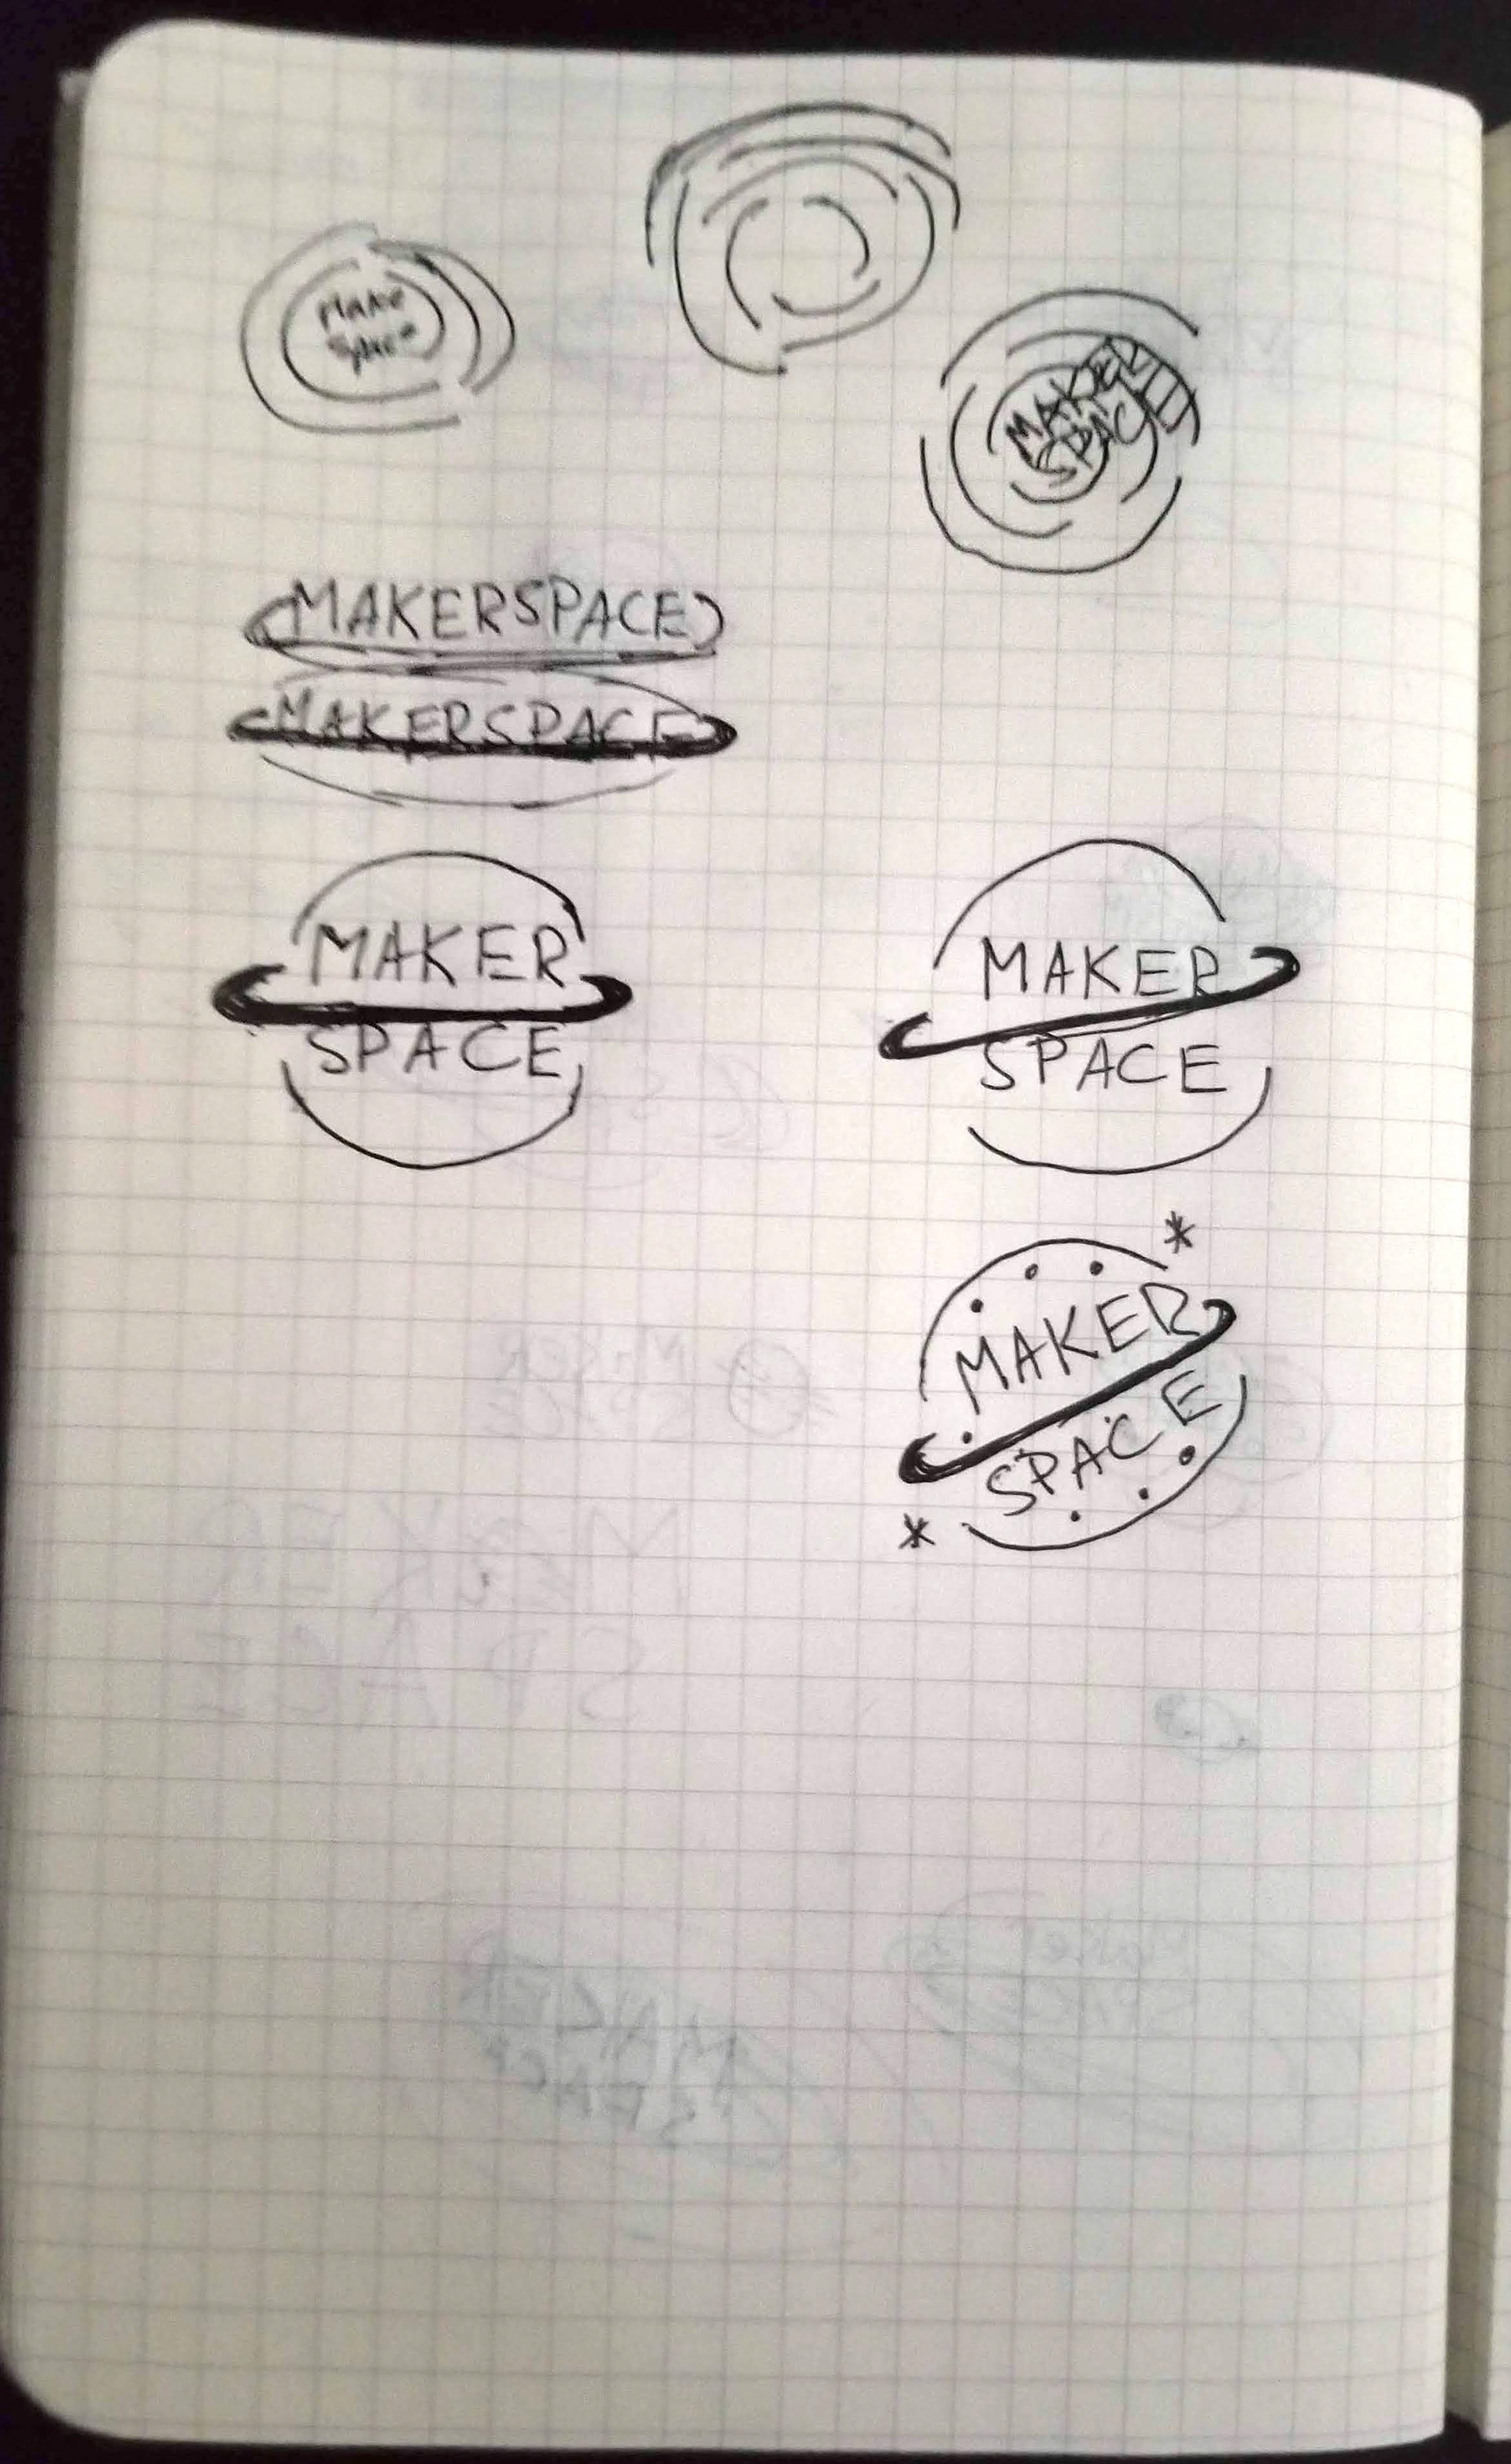 Make
Space
MAKER
SPACE
MAKERSPACE
MAKERSPACE
MAKER
SPACE
MAKER
SPACE
MAKER
SPACE